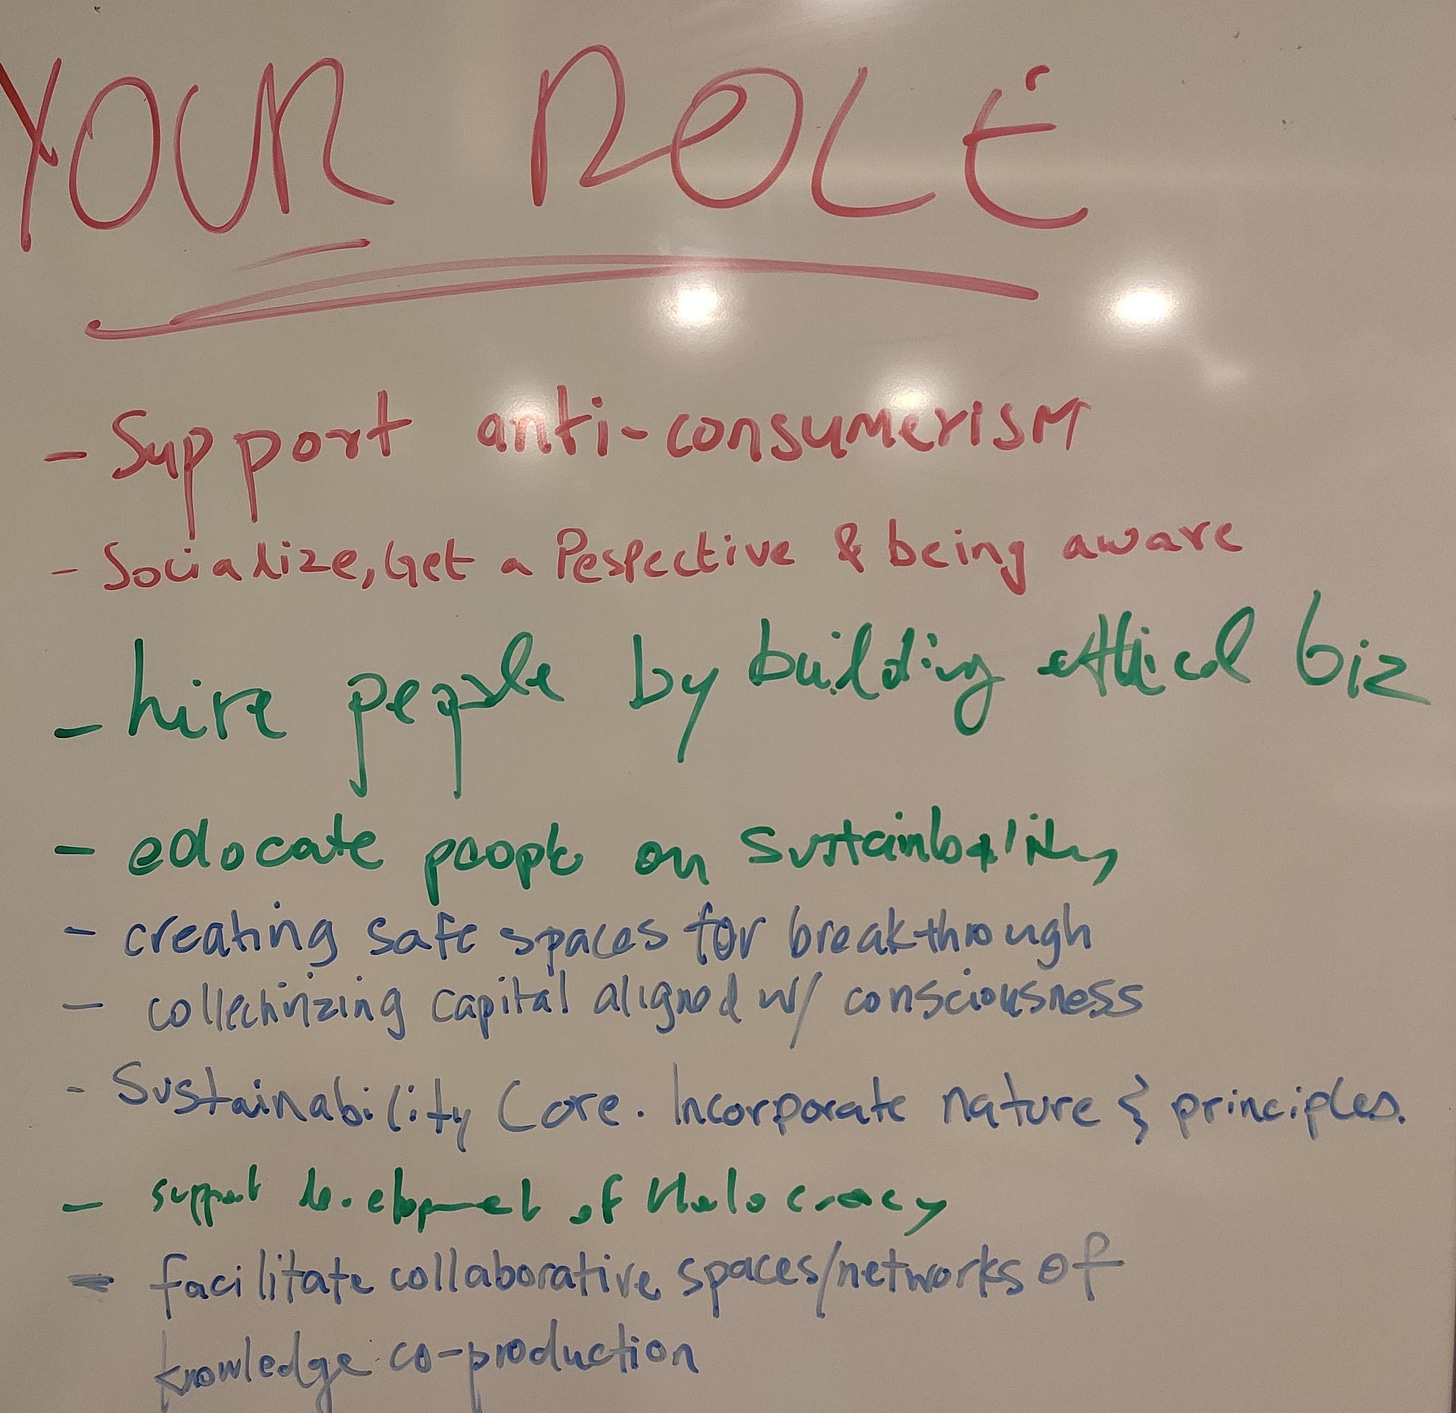 YOUR ROLE
- Support anti-consumerism
- Socialize, Get a Pespective & being aware
- hire people by building ethical biz
- edocate people on Sustainbality
- creating safe spaces for breakthrough
- collectivizing capital aligned w/ consciousness
- Sustainability Core. Incorporate nature & principles.
- support development of Holocracy
- facilitate collaborative spaces/networks of
knowledge co-production